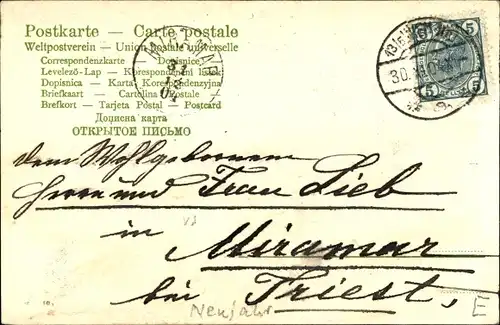 Postkarte – Carte postale
Weltpostverein – Union postale universelle
Correspondenzkarte – Dopisnice
Levelező-Lap – Korespondenční lístek
Dopisnica – Karta Korespondencyjna
Briefkaart – Cartolina Postale –
Brefkort – Tarjeta Postal – Postcard
Дописна карта
ОТКРЫТОЕ ПИСЬМО
31
12
04
13/6
30.
5 5
dem Wohlgebornenem
Herrn und Frau Lieb
in
Miramar
bei Triest,
Neujahr
E